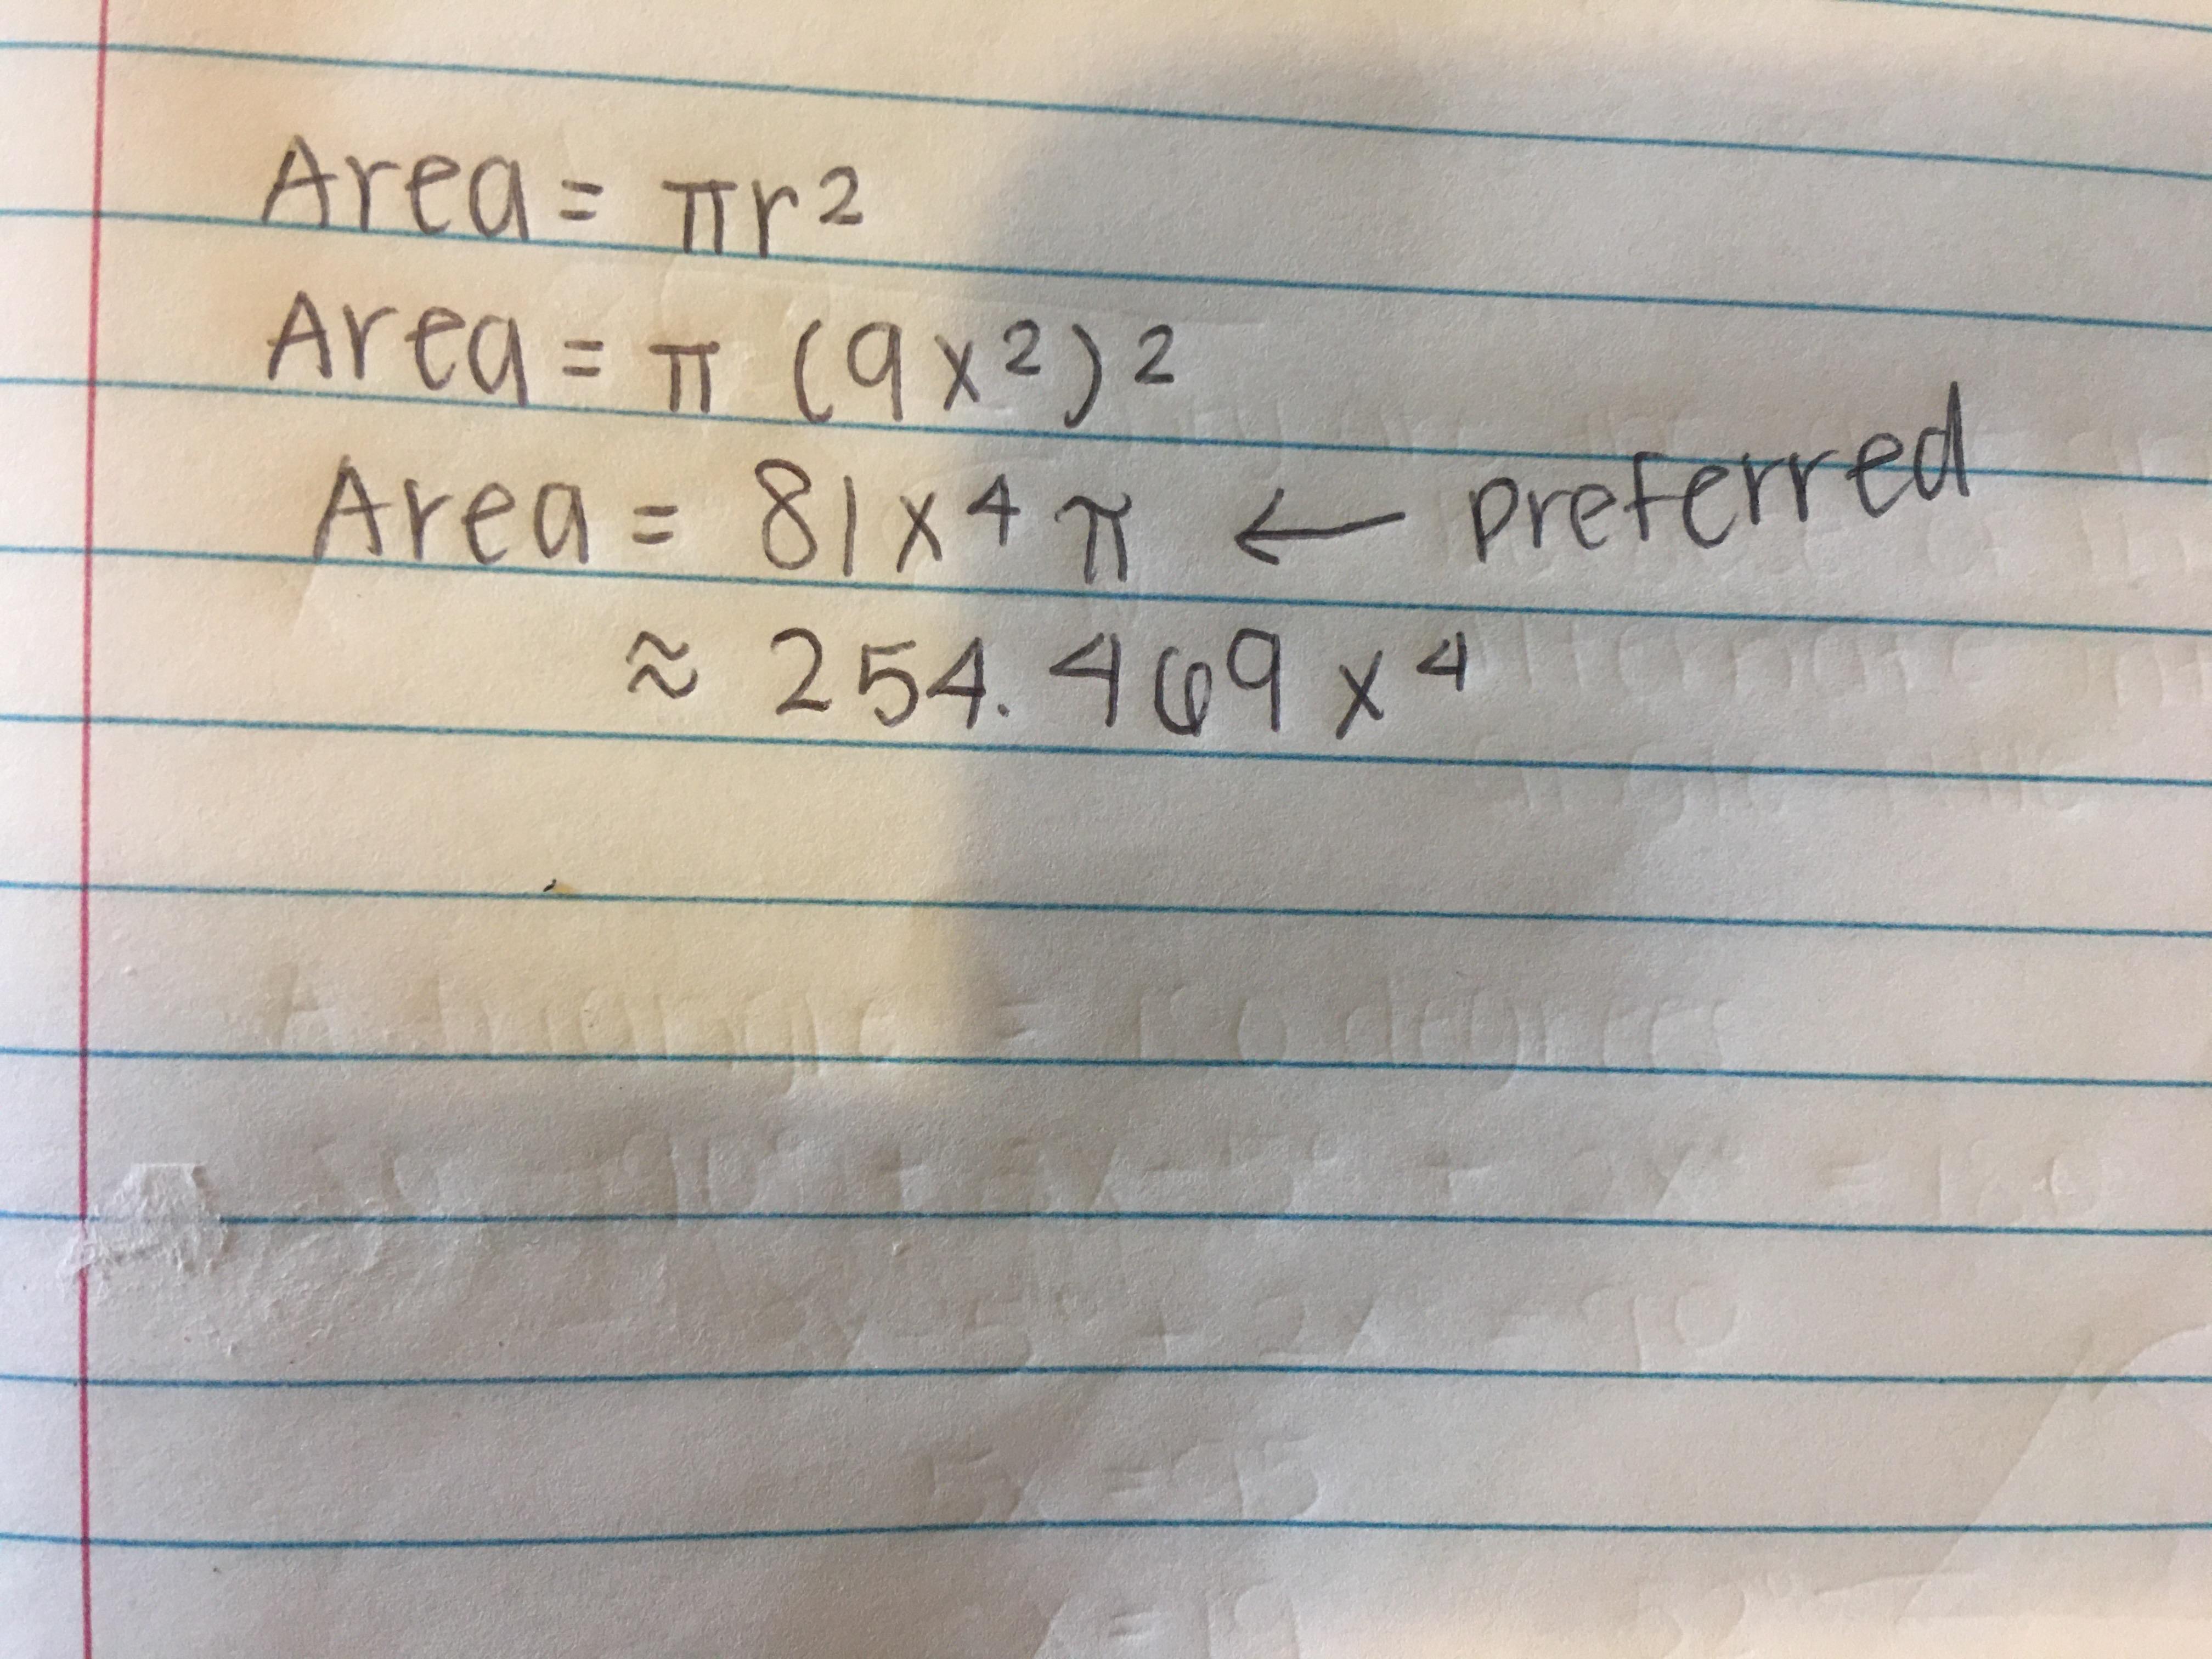 Area = πr²
Area = π (9x²)²
Area = 81x⁴π ← preferred
≈ 254.469x⁴